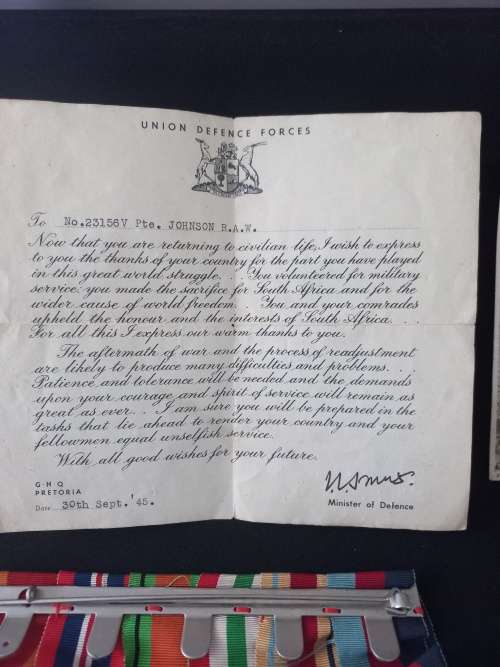 UNION DEFENCE FORCES
To No.23156V Pte. JOHNSON R.A.W.
Now that you are returning to civilian life, I wish to express
to you the thanks of your country for the part you have played
in this great world struggle. . . You volunteered for military
service: you made the sacrifice for South Africa and for the
wider cause of world freedom. . You and your comrades
upheld the honour and the interests of South Africa. . .
For all this I express our warm thanks to you.
The aftermath of war and the process of readjustment
are likely to produce many difficulties and problems. . .
Patience and tolerance will be needed and the demands
upon your courage and spirit of service will remain as
great as ever. . . I am sure you will be prepared in the
tasks that lie ahead to render your country and your
fellowmen equal unselfish service.
With all good wishes for your future.
G·H·Q
PRETORIA
Date 30th Sept.'45.
Minister of Defence